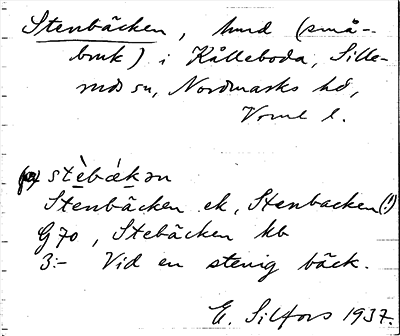 Stenbäcken, hmd (små-
bruk) i Kålleboda, Sille-
ruds sn, Nordmarks hd,
Vrml l.
(på) stèbǽkən
Stenbäcken ek, Stenbacken(!)
G70, Stebäcken kb
3:- Vid en stenig bäck.
E. Silfors 1937.